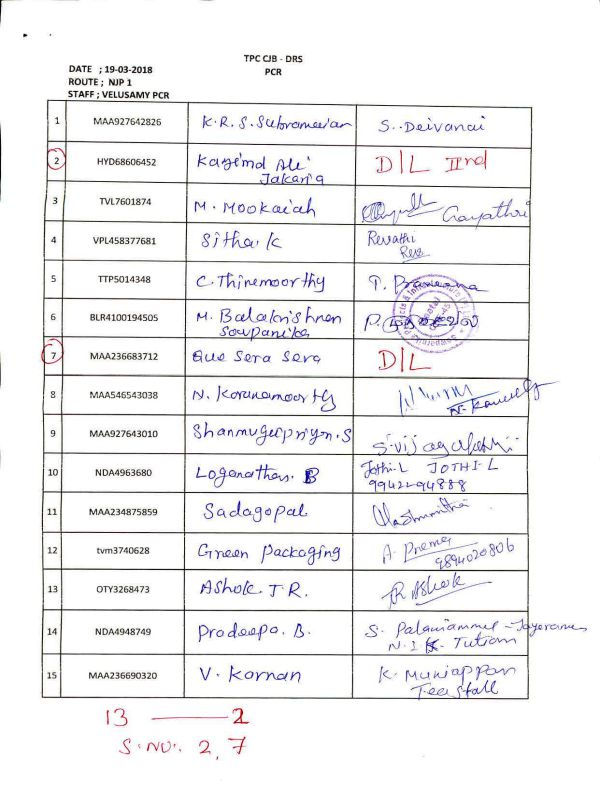 TPC CJB - DRS
PCR
DATE ; 19-03-2018
ROUTE ; NJP 1
STAFF ; VELUSAMY PCR
1 MAA927642826 K.R.S. Subramanian S. Deivanai
2 HYD68606452 Kagimd Ali D/L IInd
Jakaria
3 TVL7601874 M. Mookaiah Gayathri
4 VPL458377681 Sitha.K Revathi
Reva
5 TTP5014348 C. Thiremoorthy T.
6 BLR4100194505 M. Balakrishnen P.
Soupanika
7 MAA236683712 Que Sera Sera D/L
8 MAA546543038 N. Korunamoorthy
9 MAA927643010 Shanmugapriyon.S S. vijayalakshmi
10 NDA4963680 Loganathan. B Jothi-L JOTHI-L
99422-94888
11 MAA234875859 Sadagopal
12 tvm3740628 Green Packaging A. Prema
9894020806
13 OTY3268473 Ashok. T.R. TR Ashok
14 NDA4948749 Pradeepa. B. S. Palaniammel - Jayeramen
N.I.K. Tution
15 MAA236690320 V. Kornan K. Muniappan
Teastall
13 — 2
S.NO: 2, 7